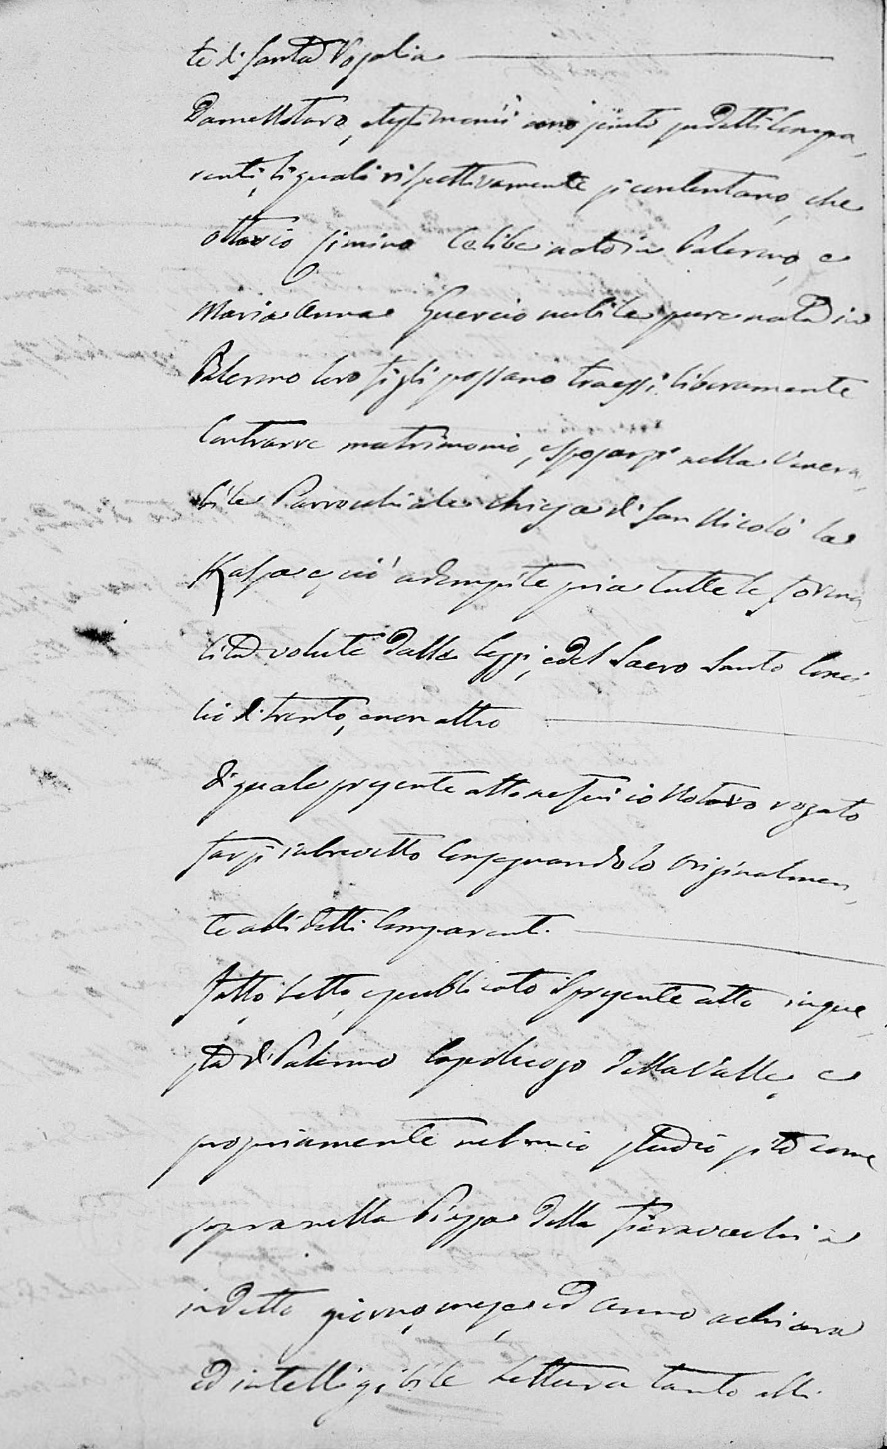 te di Santa Rosalia
Da me Notaro, e testimonii sono giunti sudetti Compa,
renti, li quali rispettivamente si contentano, che
Ottavio Cimino Celibe nato in Palermo, e
Maria Anna Guercio nubile pure nata in
Palermo loro figli possano tra essi liberamente
Contrarre matrimonio, e sposarsi nella Venera,
bile Parrocchiale chiesa di San Nicolò la
Kalsa e ciò adempite pria tutte le forma,
lità volute dalle leggi, e del Sacro Santo Conci,
lio di trento, e non altro
Di quale presente atto ne fui io Notaro rogato
farsi in brevetto Consegnandolo Originalmen,
te alli detti Comparenti.
Fatto, letto, e pubblicato il presente atto in que,
sta di Palermo Capoluogo della Valle, e
propriamente nel mio studio sito come
sopra nella Piazza della Fieravecchia
in detto giorno, mese, ed anno a chiara
ed intelligibile lettura tanto alli